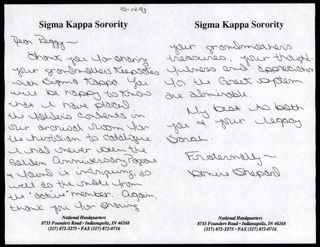 10-14-93
Sigma Kappa Sorority
Dear Peggy~
Thank you for sharing
your grandmother's keepsakes
with Sigma Kappa. You
will be happy to know
that I have placed
the folder's contents in
our archival room for
the historian to catalogue.
I had never seen the
Golden Anniversary
& found it intriguing, as
well as the note from
the "active" member. Again
thank you for sharing
National Headquarters
8733 Founders Road • Indianapolis, IN 46268
(317) 872-3275 • FAX (317) 872-0716
Sigma Kappa Sorority
your grandmother's
treasures. Your thought-
fulness and appreciation
for the Greek system
are admirable.
My best to both
you & your legacy
Sarah.
Fraternally~
Shepard
National Headquarters
8733 Founders Road • Indianapolis, IN 46268
(317) 872-3275 • FAX (317) 872-0716